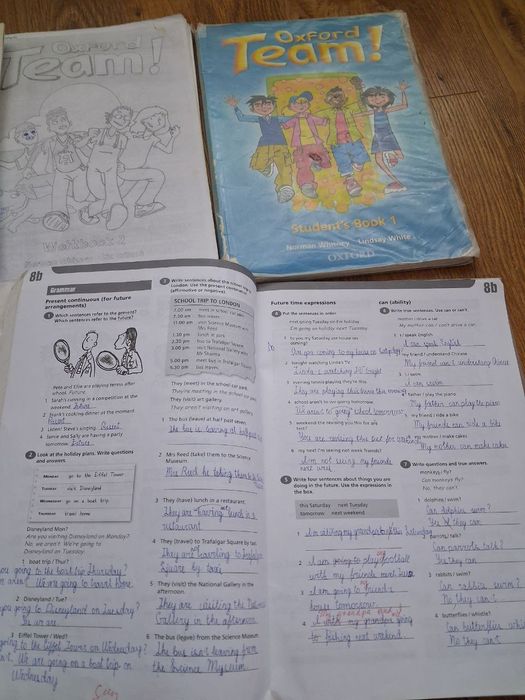 Oxford
Team!
Workbook 2
Oxford
Team!
Student's Book 1
Norman Whitney Lindsay White
OXFORD
8b
Grammar
Present continuous (for future
arrangements)
1 Which sentences refer to the present?
Which sentences refer to the future?
Pete and Ellie are playing tennis after
school. Future
1 Sarah's running in a competition at the
weekend. Future
2 Frank's cooking dinner at the moment.
Present
3 Listen! Steve's singing. Present
4 Jamie and Sally are having a party
tomorrow. Future
2 Look at the holiday plans. Write questions
and answers.
Monday go to the Eiffel Tower
Tuesday visit Disneyland
Wednesday go on a boat trip
Thursday travel home
Disneyland Mon?
Are you visiting Disneyland on Monday?
No, we aren't. We're going to
Disneyland on Tuesday.
1 boat trip / Thur?
going to the boat trip Thursday?
We going to travel home.
2 Disneyland / Tue?
going to Disneyland on Tuesday?
we are.
3 Eiffel Tower / Wed?
going to the Eiffel Tower on Wednesday?
We are going on a boat trip on
Wednesday
3 Write sentences about the school trip to
London. Use the present continuous
(affirmative or negative).
SCHOOL TRIP TO LONDON
7.00 am meet in school car park
7.30 am bus leaves
11.00 am visit Science Museum with
Mrs Reed
1.30 pm lunch in park
2.30 pm bus to Trafalgar Square
3.00 pm visit National Gallery with
Mr Sharma
5.00 pm meet bus in Trafalgar Square
5.30 pm bus leaves
(They) (meet) in the school car park.
They're meeting in the school car park.
(They) (visit) art gallery.
They aren't visiting an art gallery.
1 The bus (leave) at half past seven.
The bus is leaving at half past
2 Mrs Reed (take) them to the Science
Museum.
Mrs Reed he taking them to
3 They (have) lunch in a restaurant.
They are having lunch in a
restaurant
4 They (travel) to Trafalgar Square by taxi.
They are traveling to Trafalgar
Square by taxi
5 They (visit) the National Gallery in the
afternoon.
They are visiting the
Gallery in the afternoon.
6 The bus (leave) from the Science Museum.
The bus isn't leaving from
the Science Museum
8b
Future time expressions
4 Put the sentences in order.
next going Tuesday on I'm holiday
I'm going on holiday next Tuesday.
1 to you my Saturday are house on
coming?
Are you coming to my house on Saturday
2 tonight watching Linda's TV
Linda's watching TV tonight
3 evening tennis playing they're this
They are playing this tennis evening
4 school aren't to we going tomorrow
We aren't to going school tomorrow
5 weekend the revising you this for are
test?
You are revising this test for weekend
6 my next I'm seeing not week friends
I am not seeing my friends
next week
5 Write four sentences about things you are
doing in the future. Use the expressions in
the box.
this Saturday next Tuesday
tomorrow next weekend
1 I am visiting my grandparents this Saturday
2 I am going to play football
with my friends next Tuesday
3 I am going to friend's
house tomorrow
4 I with my grandpa going
to fishing next weekend.
can (ability)
6 Write true sentences. Use can or can't.
mother / drive a car
My mother can / can't drive a car.
1 I / speak English
I can speak English
2 my friend / understand Chinese
My friend can't understand Chinese
3 I / swim
I can swim
4 father / play the piano
My father can play the piano
5 my friend / ride a bike
My friend can ride a bike
6 my mother / make cakes
My mother can make cakes
7 Write questions and true answers.
monkeys / fly?
Can monkeys fly?
No, they can't.
1 dolphins / swim?
Can dolphins swim?
Yes they can
2 parrots / talk?
Can parrots talk?
Yes they can
3 rabbits / swim?
Can rabbits swim?
No they can't
4 butterflies / whistle?
Can butterflies whistle
No they can't